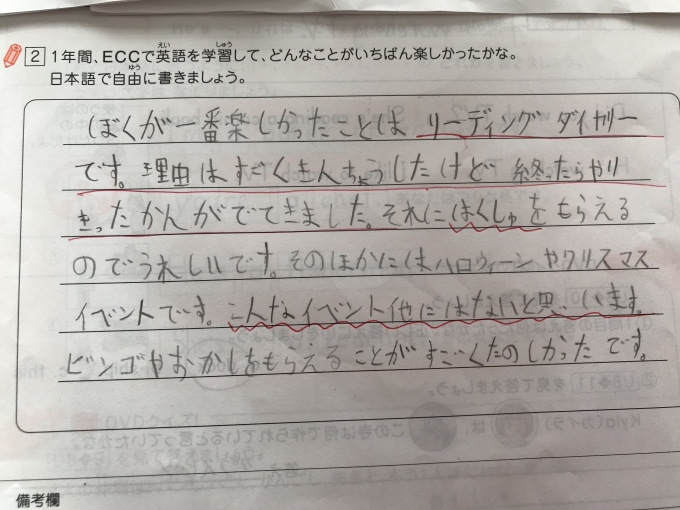 2 1年間、ECCで英語を学習して、どんなことがいちばん楽しかったかな。
日本語で自由に書きましょう。
ぼくが一番楽しかったことは リーディング ダイヤリー
です。理由はすごくきんちょうしたけど 終ったらやり
きったかんがでてきました。それにはくしゅをもらえる
のでうれしいです。そのほかにはハロウィーンやクリスマス
イベントです。こんなイベント他にはないと思います。
ビンゴやおかしをもらえることがすごくたのしかったです。
備考欄